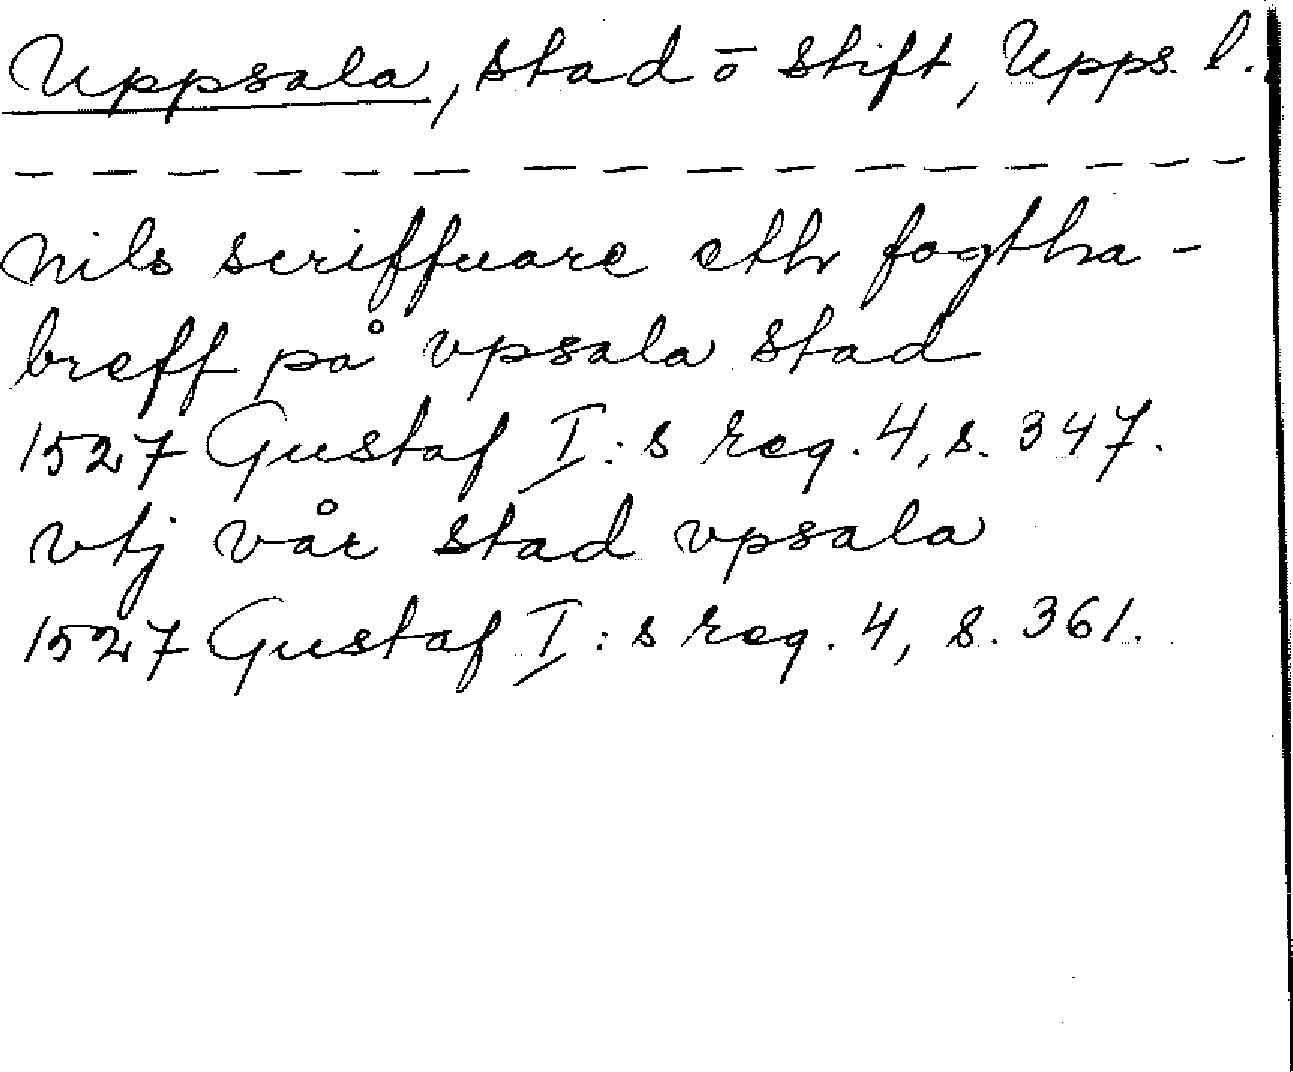 Uppsala, stad o stift, Upps. l.
Nils scriffuare eth fogtha-
breff på vpsala stad
1527 Gustaf I:s reg. 4, s. 347.
vtj vår stad vpsala
1527 Gustaf I:s reg. 4, s. 361.